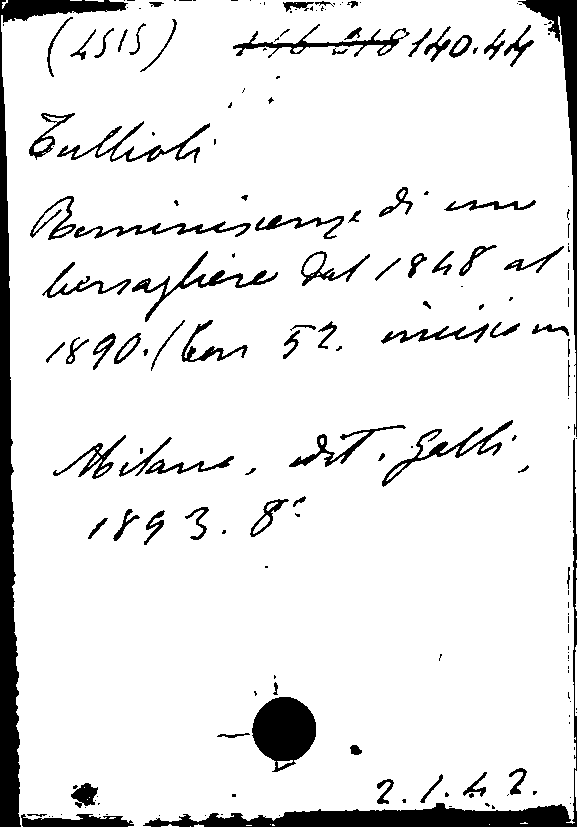 (2515) 140.44
Tullioli
Reminiscenze di un
bersagliere dal 1848 al
1890. (Con 52. incision
Milano, edit. Galli,
1893. 8°
2.1.42.